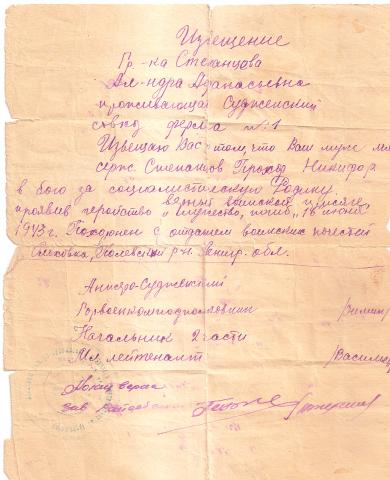 Извещение
Гр-ка Степанцова
Ал-ндра Афанасьевна
проживающая Судженский
совхоз ферма №1
Извещаю Вас о том, что Ваш муж мл
серж. Степанцов Прохор Никифор
в бою за социалистическую Родину
верный воинской присяге,
проявив геройство и мужество, погиб "18 июля
1943 г. Похоронен с отданием воинских почестей
р-н. Ленингр. обл.
Анжеро-Судженский
Горвоенком подполковник /Зимин/
Начальник 2 части
Мл лейтенант /Василье
Копия верна
Зав